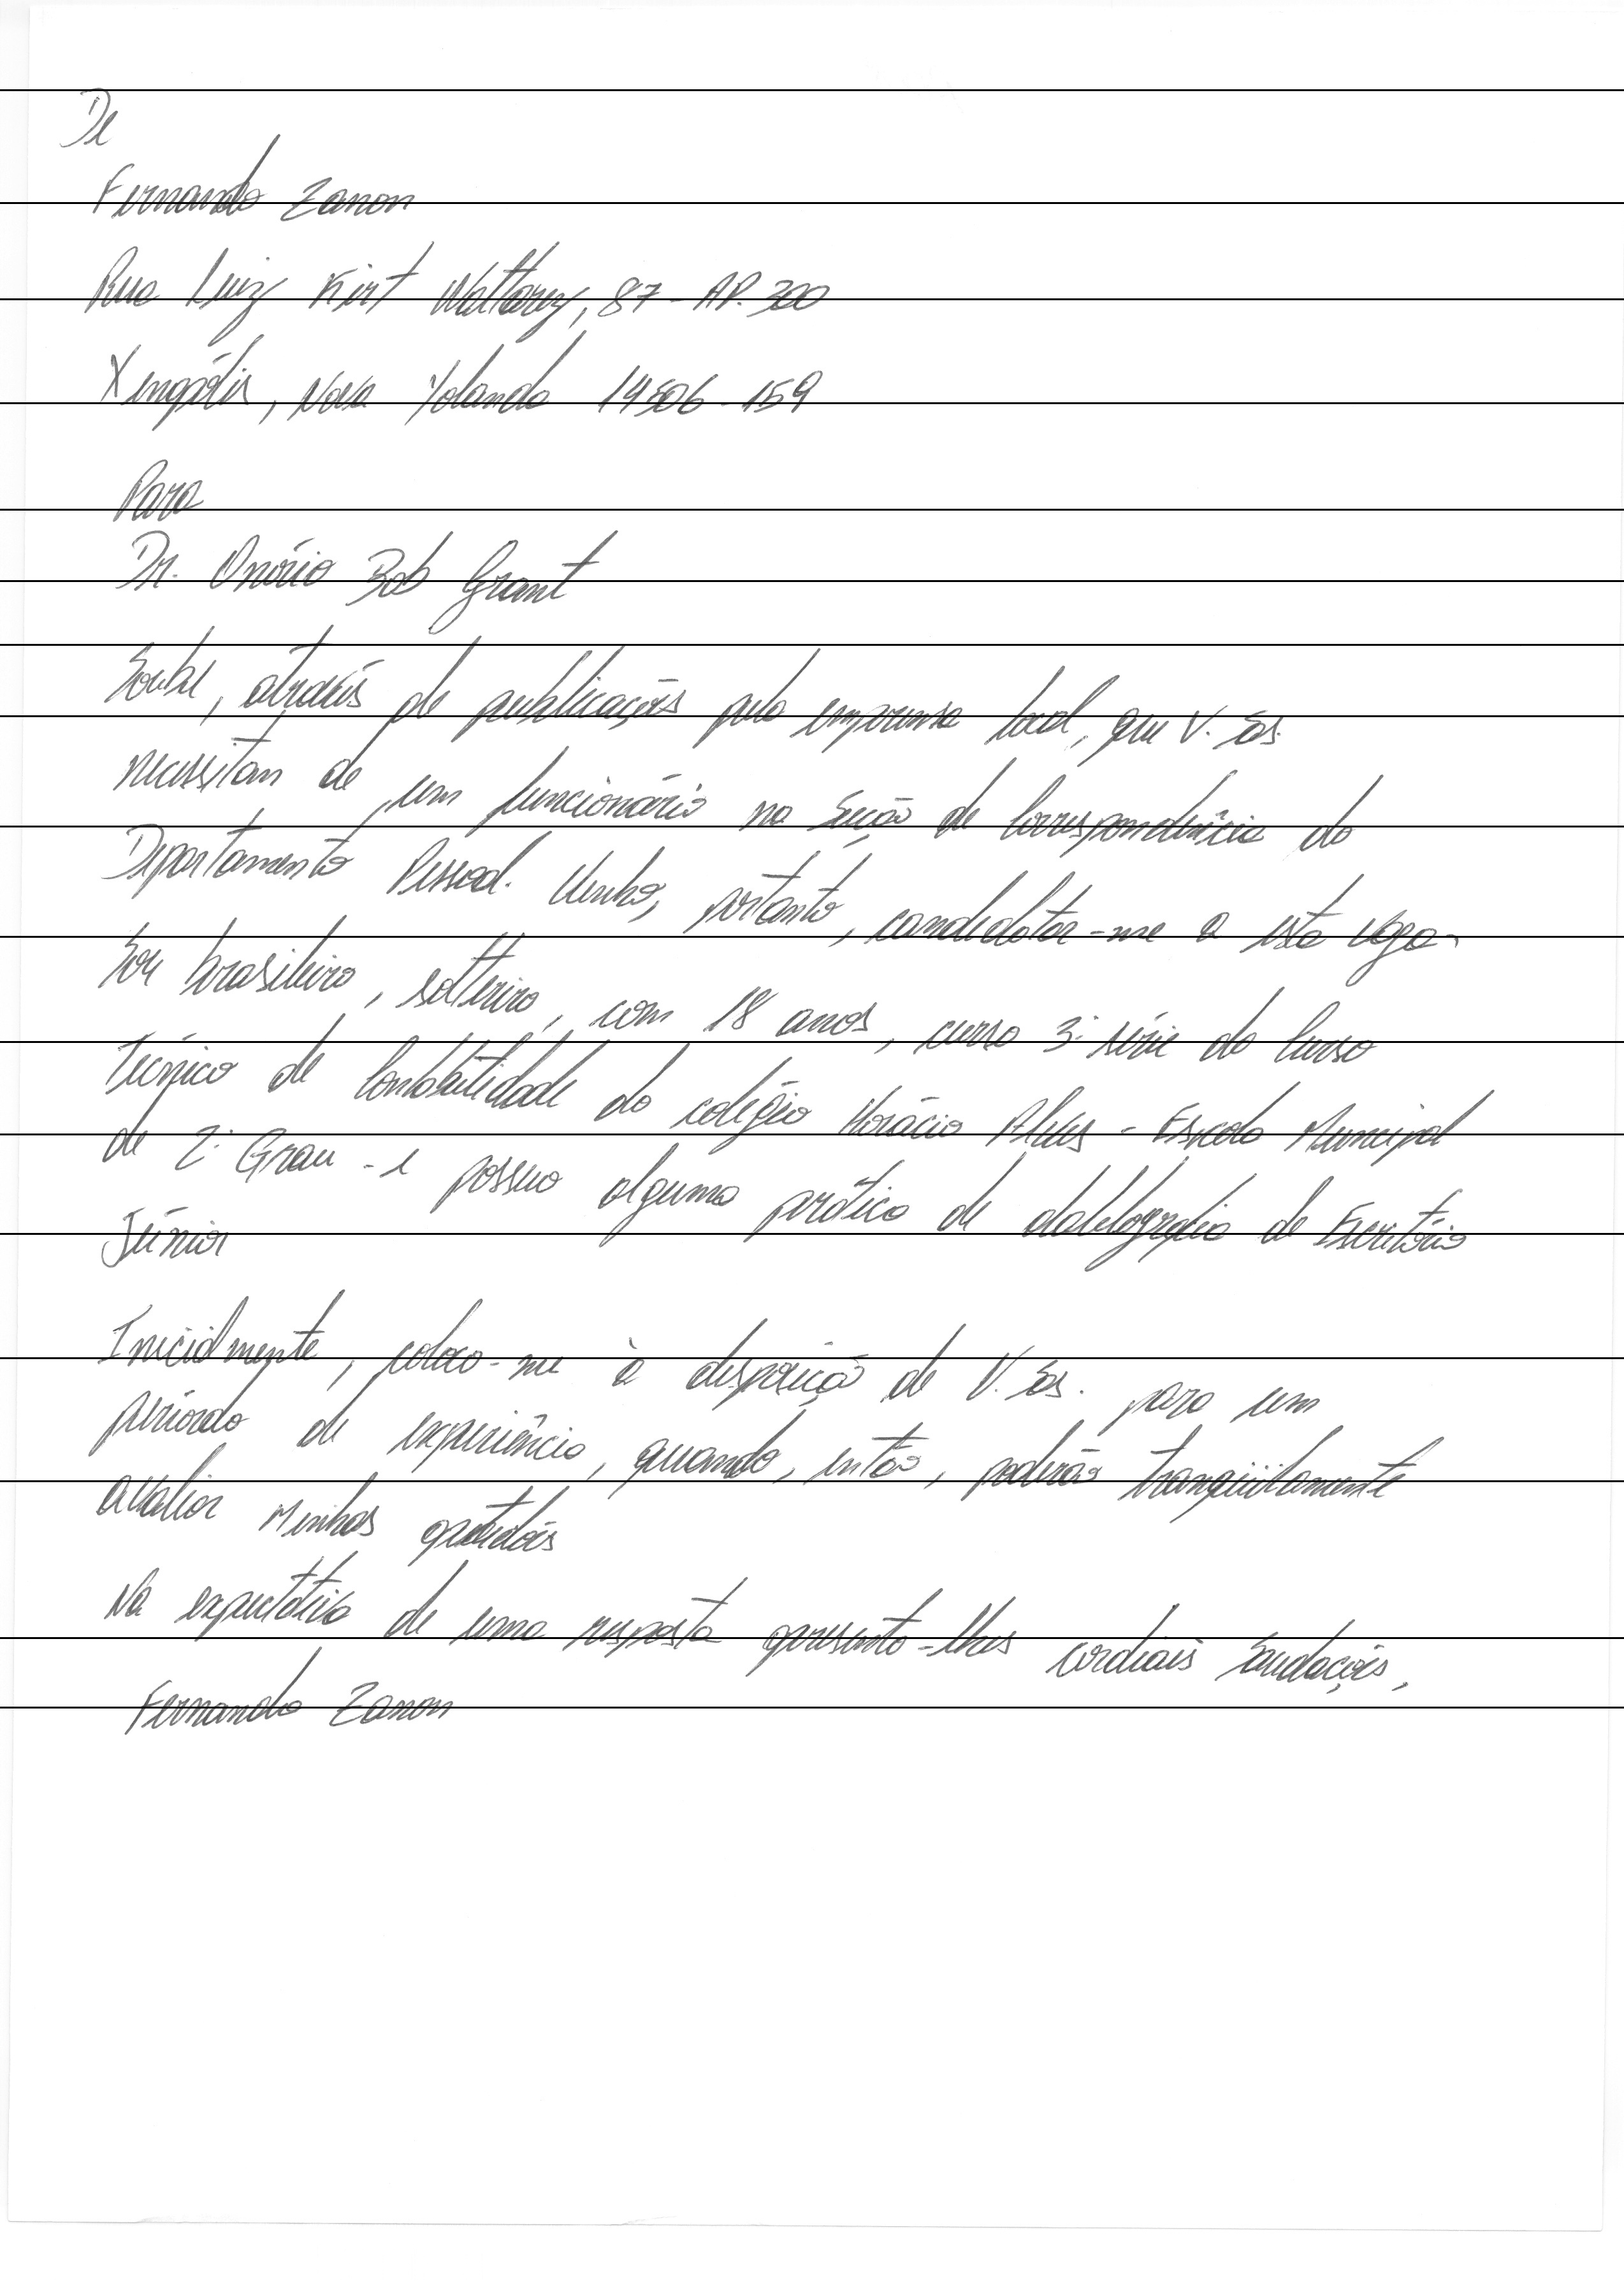 De
Fernando Zanon
Rua Luiz Kirt Wattarez, 87 - AP. 300
Xengólis, Nova Yolanda 14506-159
Para
Dr. Onório Bob Grant
Soube, através de publicações pela imprensa local, que V. Sas.
necessitam de um funcionário na Seção de Correspondência do
Departamento Pessoal. Venho, portanto, candidatar-me a esta vaga.
Sou brasileiro, solteiro, com 18 anos, curso 3ª série do Curso
Técnico de Contabilidade do colégio Horácio Alves - Escola Municipal
de 2º Grau - e possuo alguma prática de datilografia de Escritório
Júnior
Inicialmente, coloco-me à disposição de V. Sas. para um
período de experiência, quando, então, poderão tranqüilamente
avaliar Minhas aptidões
Na expectativa de uma resposta apresento-lhes cordiais Saudações,
Fernando Zanon